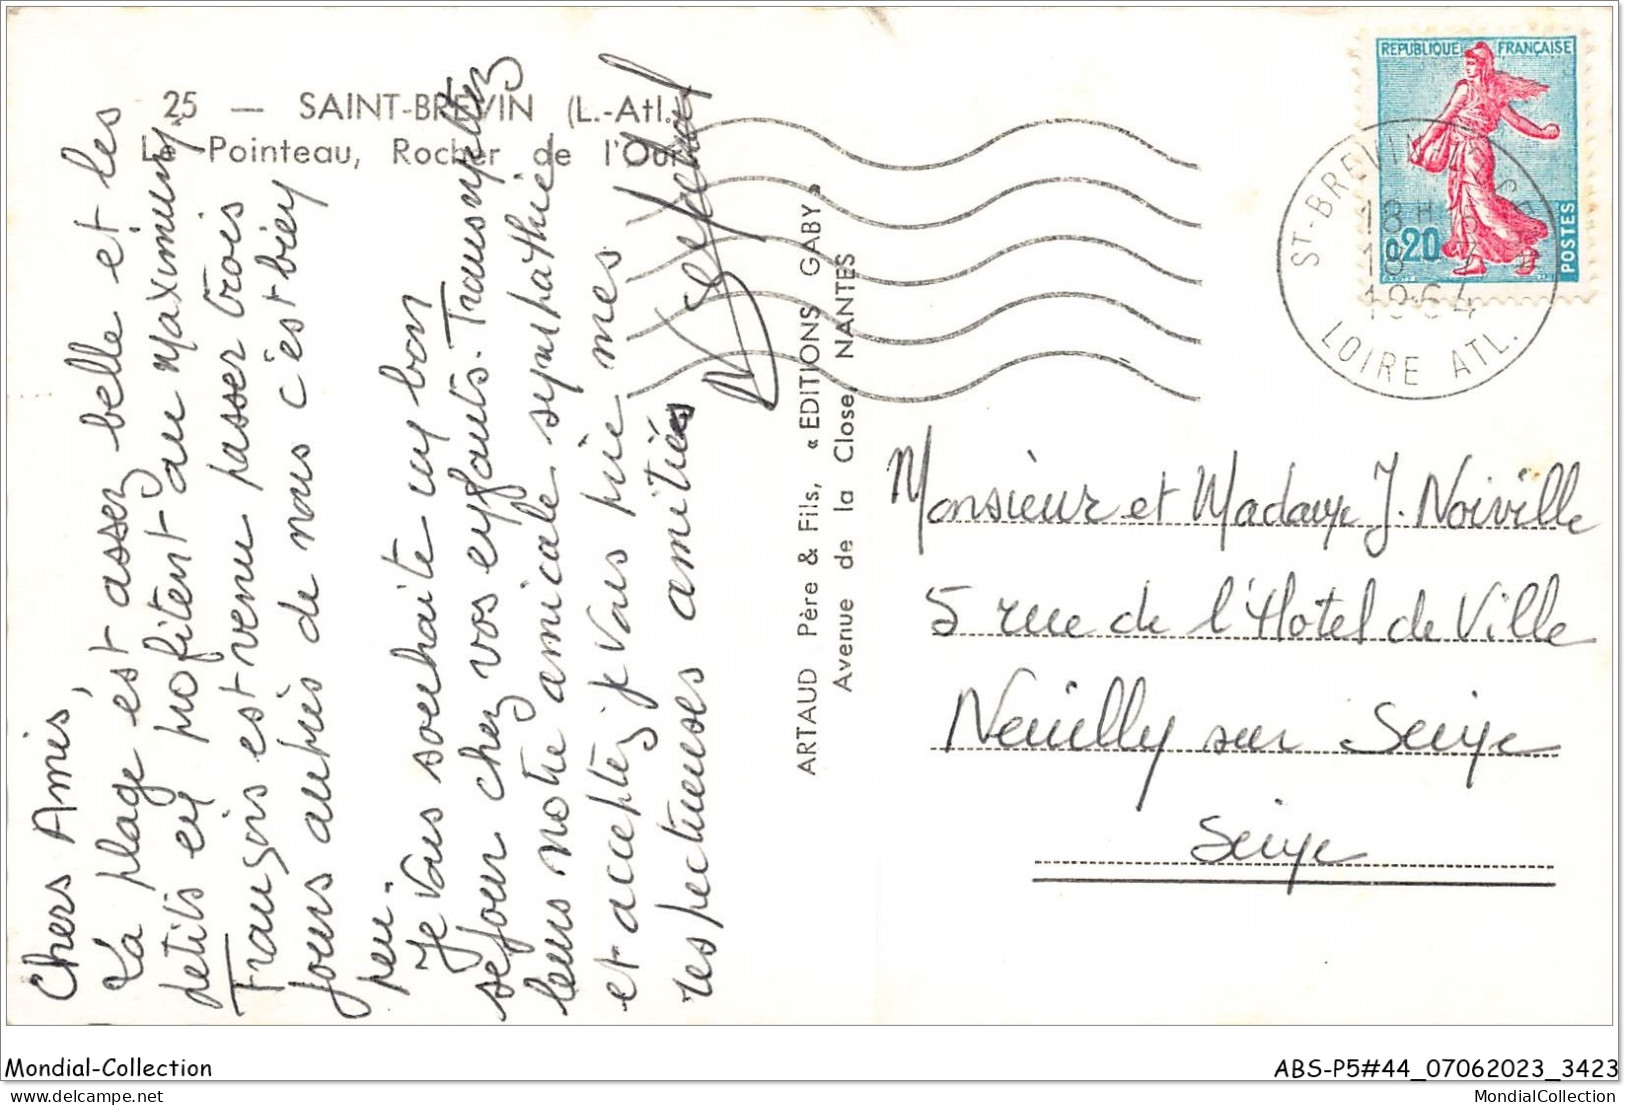 25 — SAINT-BREVIN (L.-Atl.)
Le Pointeau, Rocher de l'Ours
Chers Amis,
La plage est assez belle et les
petits en profitent au maximum.
François est venu passer trois
jours auprès de nous c'est bien
peu.
Je vous souhaite un bon
séjour chez vos enfants. Transmettez
leur notre amicale sympathie
et acceptez je vous prie mes
respectueuses amitiés
ARTAUD Père & Fils, « EDITIONS GABY »
Avenue de la Close, NANTES
REPUBLIQUE FRANÇAISE
0,20
POSTES
ST-BREVIN
18 H
1964
LOIRE ATL.
Monsieur et Madame J. Noiville
5 rue de l'Hotel de Ville
Neuilly sur Seine
Seine
Mondial-Collection
ABS-P5#44_07062023_3423
delcampe.net
MondialCollection